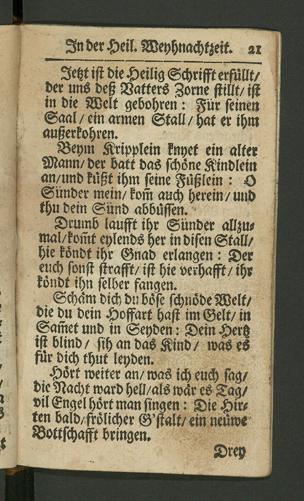 In der Heil. Weyhnachtzeit. 21
Jetzt ist die Heilig Schrifft erfüllt/
der uns deß Vatters Zorne stillt/ ist
in die Welt gebohren : Für seinen
Saal/ ein armen Stall/ hat er ihm
außerkohren.
Beym Kripplein knyet ein alter
Mann/ der batt das schöne Kindlein
an/und küßt ihm seine Füßlein : O
Sünder mein/ kom̃ auch herein/ und
thu dein Sünd abbüssen.
Drumb laufft ihr Sünder allzu-
mal/kom̃t eylends her in disen Stall/
hie köndt ihr Gnad erlangen : Der
euch sonst strafft/ ist hie verhafft/ ihr
köndt ihn selber fangen.
Schäm dich du böse schnöde Welt/
die du dein Hoffart hast im Gelt/ in
Sam̃et und in Seyden : Dein Hertz
ist blind/ sih an das Kind/ was es
für dich thut leyden.
Hört weiter an/ was ich euch sag/
die Nacht ward hell/als wär es Tag/
vil Engel hört man singen : Die Hir-
ten bald/frölicher G'stalt/ ein neüwe
Bottschafft bringen.
Drey